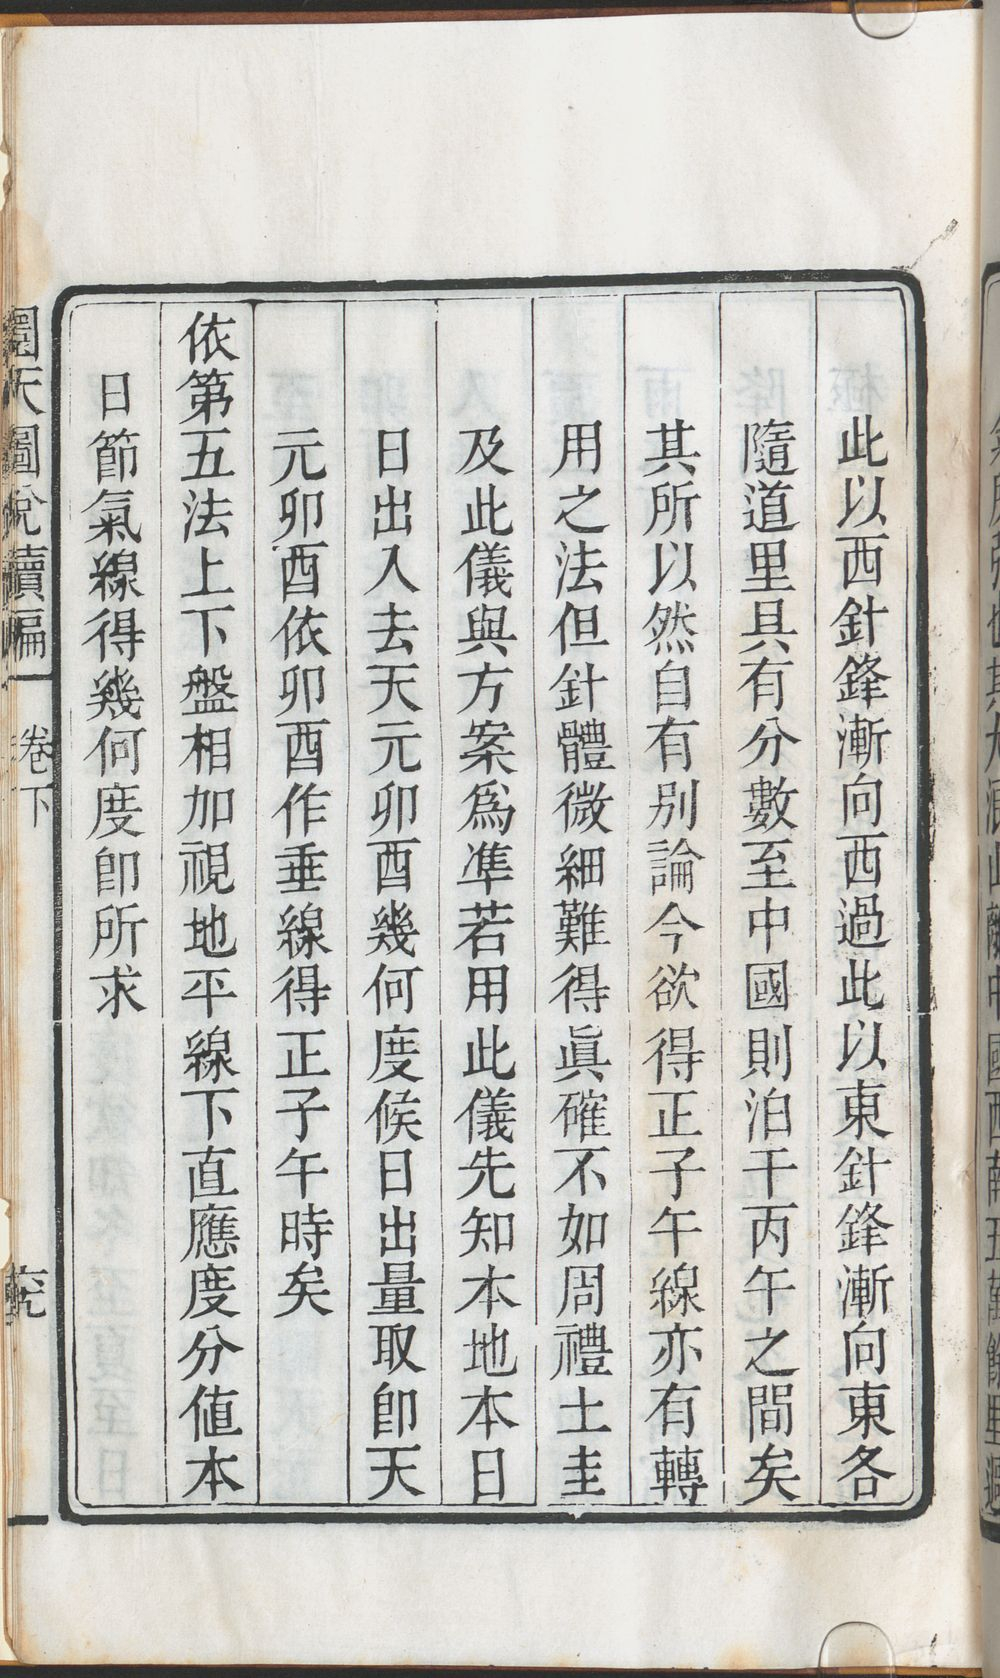 此以西針鋒漸向西過此以東針鋒漸向東各
隨道里具有分數至中國則泊于丙午之間矣
其所以然自有別論今欲得正子午線亦有轉
用之法但針體微細難得眞確不如周禮土圭
及此儀與方案爲準若用此儀先知本地本日
日出入去天元卯酉幾何度候日出量取卽天
元卯酉依卯酉作垂線得正子午時矣
依第五法上下盤相加視地平線下直應度分値本
日節氣線得幾何度卽所求
圜天圖說續編
卷下